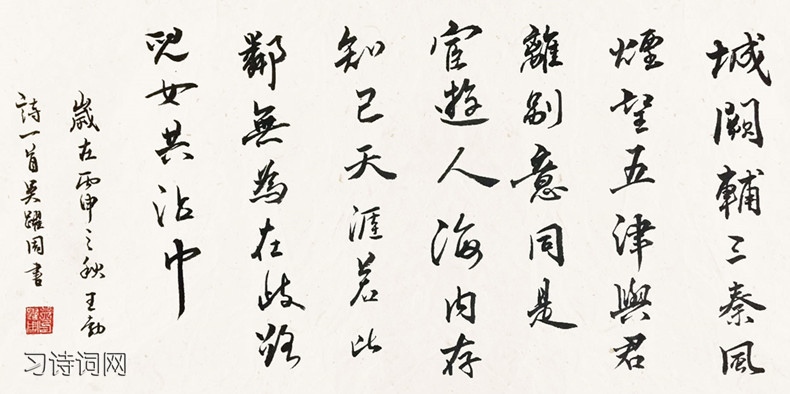 城闕輔三秦風
煙望五津與君
離別意同是
宦遊人海內存
知己天涯若比
鄰無為在歧路
兒女共沾巾
歲在丙申之秋王勃
詩一首吳躍周書
习诗词网